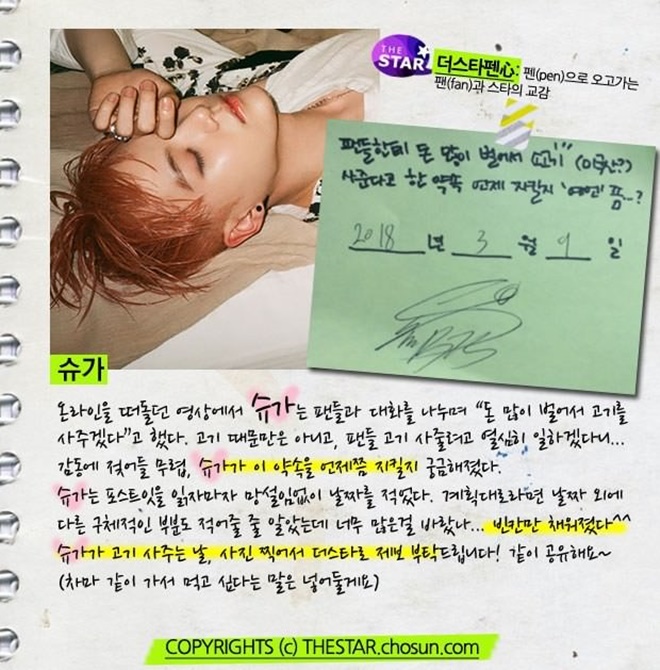 THE STAR
더스타펜心: 펜(pen)으로 오고가는
팬(fan)과 스타의 교감
팬들한테 돈 많이 벌어서 고기
사준다고 한 약속 언제 지킬지 '예고' 쫌..?
2018 년 3 월 9 일
BTS
슈가
온라인을 떠돌던 영상에서 슈가는 팬들과 대화를 나누며 "돈 많이 벌어서 고기를
사주겠다"고 했다. 고기 때문만은 아니고, 팬들 고기 사줄려고 열심히 일하겠다니...
감동에 젖어들 무렵, 슈가가 이 약속을 언제쯤 지킬지 궁금해졌다.
슈가는 포스트잇을 읽자마자 망설임없이 날짜를 적었다. 계획대로라면 날짜 외에
다른 구체적인 부분도 적어줄 줄 알았는데 너무 많은걸 바랐나... 빈칸만 채워졌다^^
슈가가 고기 사주는 날, 사진 찍어서 더스타로 제보 부탁드립니다! 같이 공유해요~
(차마 같이 가서 먹고 싶다는 말은 넣어둘게요)
COPYRIGHTS (c) THESTAR.chosun.com